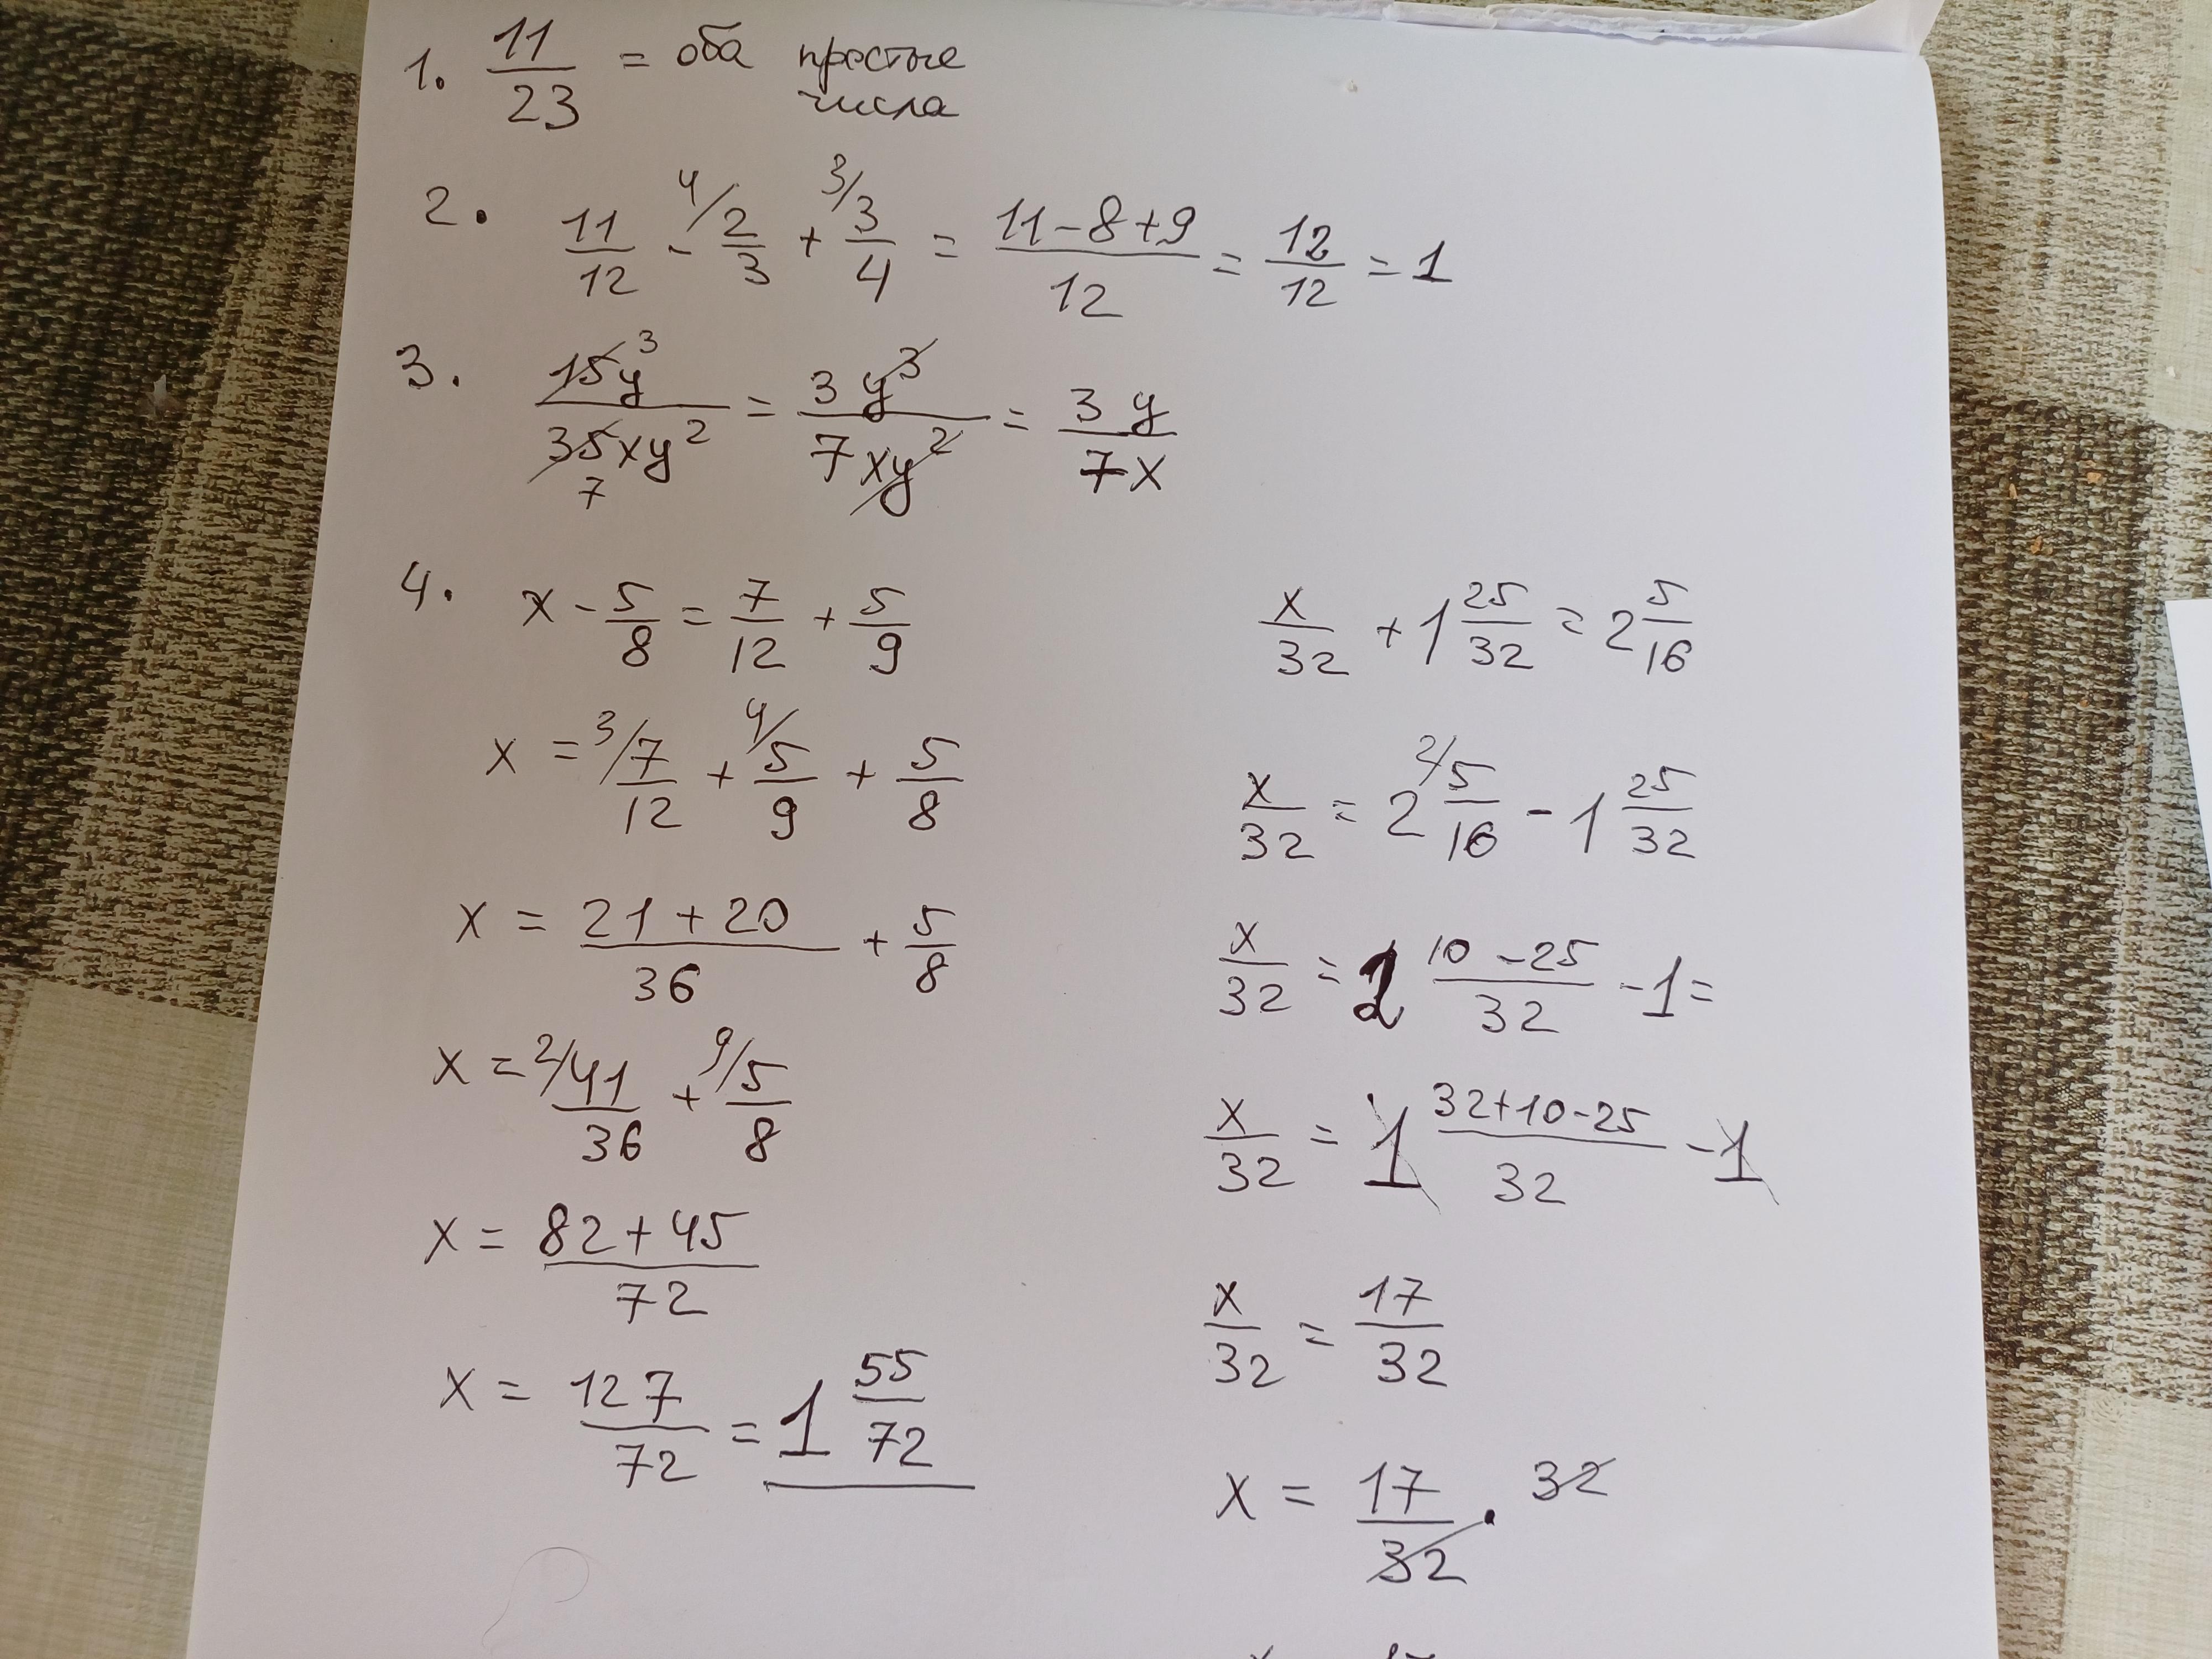 1. 11/23 = оба простые
числа
2. 11/12 - ⁴/ 2/3 + ³/ 3/4 = (11-8+9)/12 = 12/12 = 1
3. 15y³/35xy² = 3y³/7xy² = 3y/7x
7
4. x - 5/8 = 7/12 + 5/9
x = ³/ 7/12 + ⁴/ 5/9 + 5/8
x = (21+20)/36 + 5/8
x = ²/ 41/36 + ⁹/ 5/8
x = (82+45)/72
x = 127/72 = 1 55/72
x/32 + 1 25/32 = 2 5/16
x/32 = 2 ²/ 5/16 - 1 25/32
x/32 = 2 (10-25)/32 - 1 =
x/32 = 1 (32+10-25)/32 - 1
x/32 = 17/32
x = 17/32 · 32